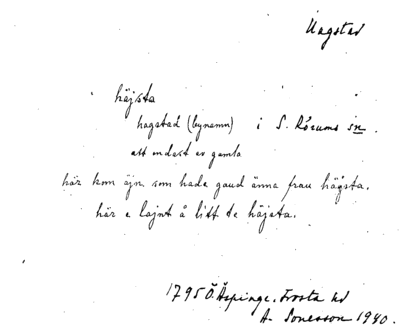 Ungstad
häjsta
hagstad (bynamn) i S. Rörums sn.
ett endast av gamla
här kom äjn, som hade gaud änna frau hägsta.
här e lajnt å litt te häjsta.
1795 Ö. Äspinge. Frosta hd
A. Sonesson 1940.